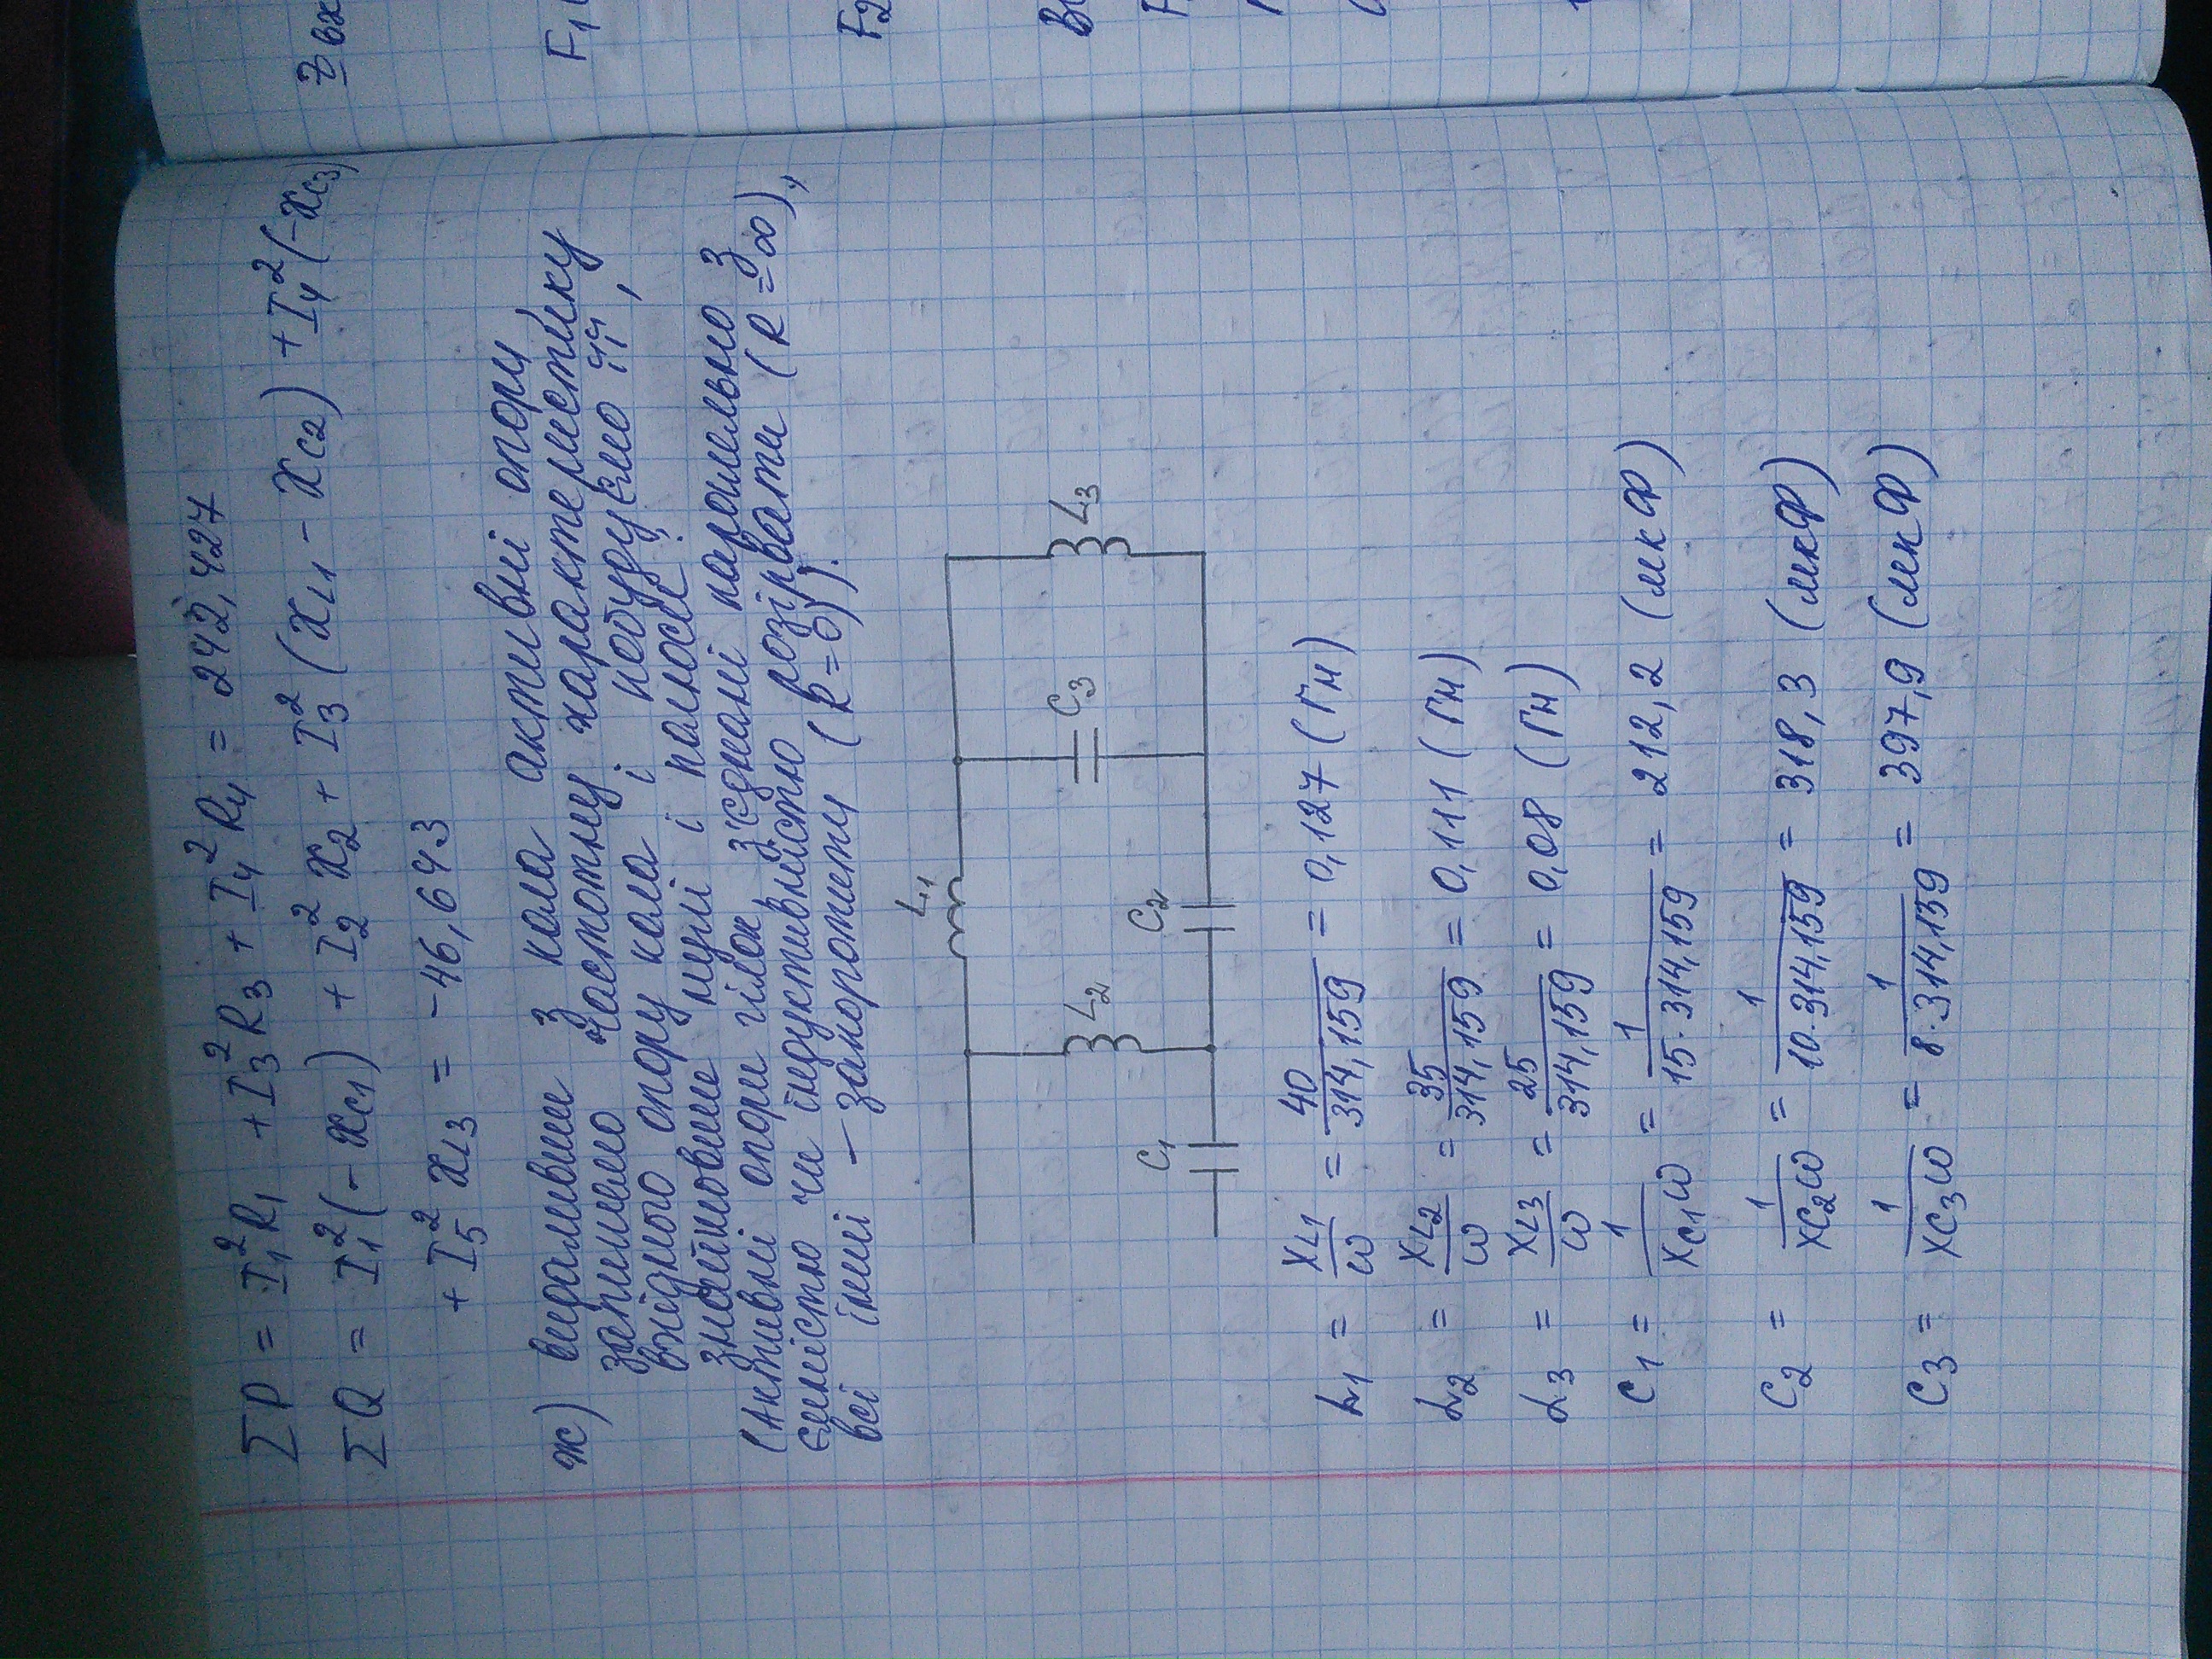 ΣP = I₁²R₁ + I₃²R₃ + I₄²R₄ = 242,427
ΣQ = I₁²(-x_C1) + I₂²x₂ + I₃²(x_L1 - x_C2) + I₄²(-x_C3)
+ I₅²x_L3 = -46,643
ж) видаливши з кола активні опори,
запишемо частотну характеристику
вхідного опору кола і побудуємо її,
знайшовши нулі і полюсе
(Активні опори гілок, з'єднані паралельно з
ємністю чи індуктивністю розірвати (R=∞),
всі інші - закоротити (R=0)).
L₁
L₂
C₃
L₃
C₁
C₂
L₁ = x_L1/ω = 40/314,159 = 0,127 (Гн)
L₂ = x_L2/ω = 35/314,159 = 0,111 (Гн)
L₃ = x_L3/ω = 25/314,159 = 0,08 (Гн)
C₁ = 1/x_C1ω = 1/15·314,159 = 212,2 (мкФ)
C₂ = 1/x_C2ω = 1/10·314,159 = 318,3 (мкФ)
C₃ = 1/x_C3ω = 1/8·314,159 = 397,9 (мкФ)
Z вх
F₁(
F₂